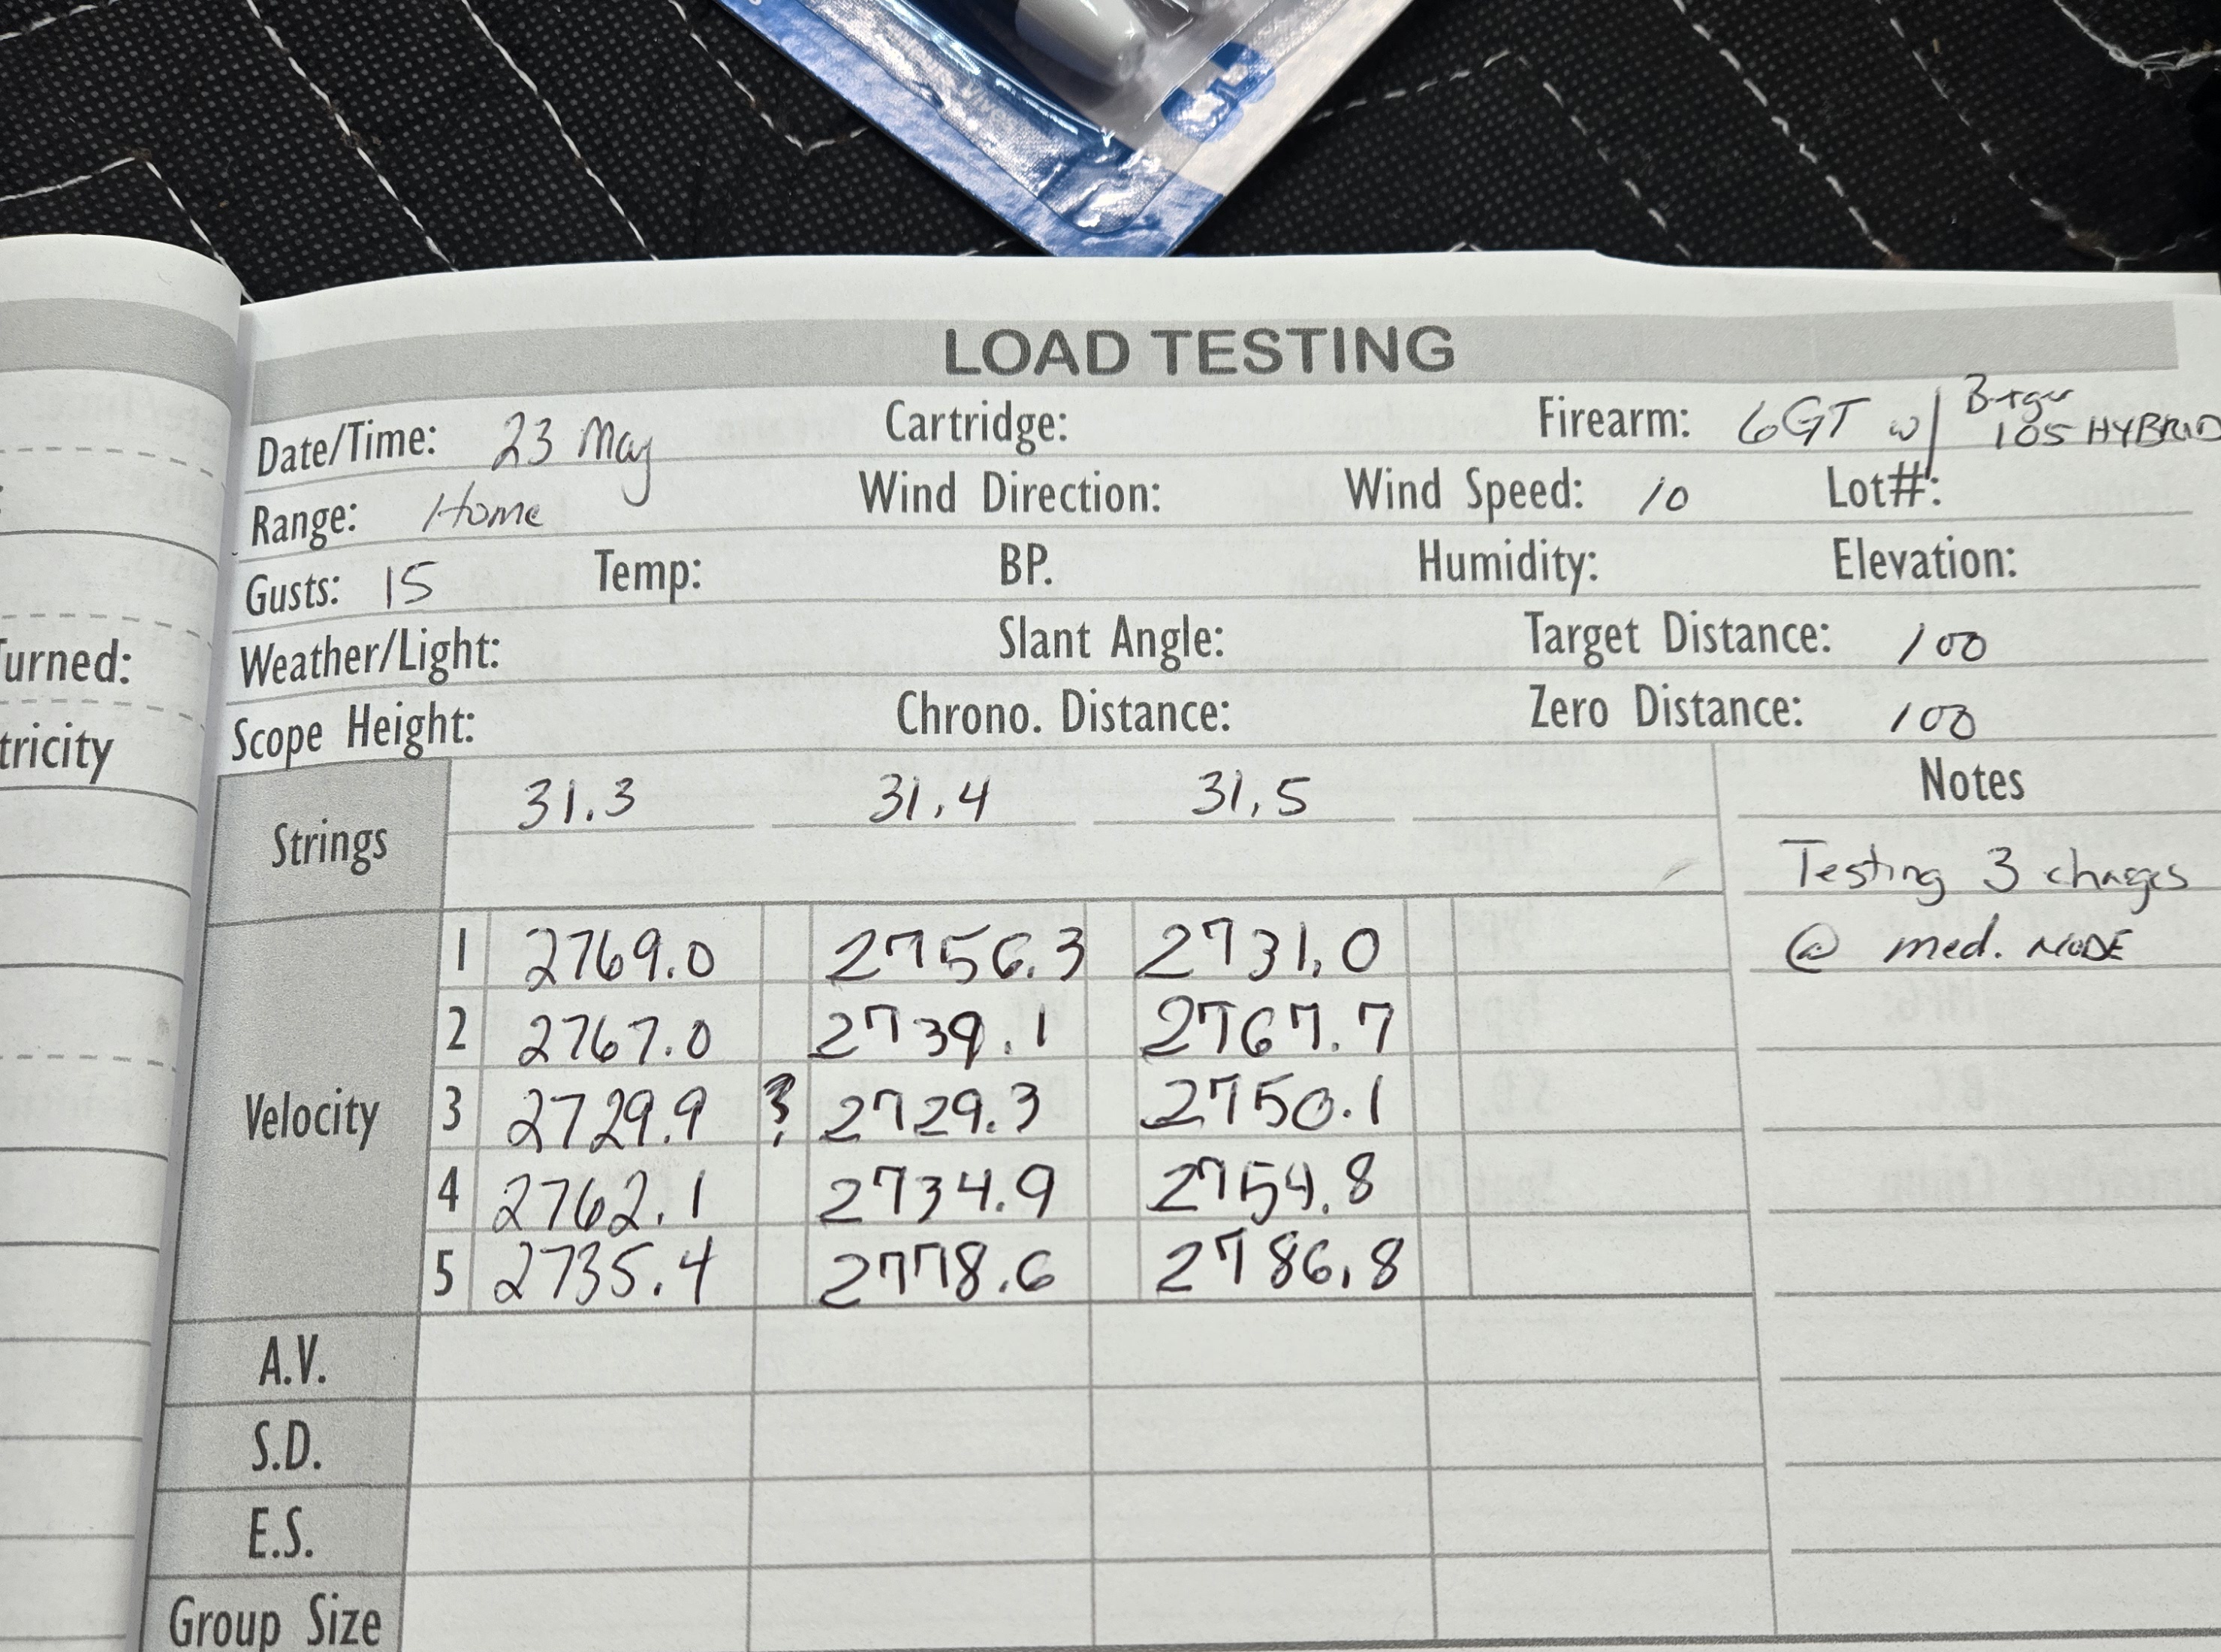 LOAD TESTING
Date/Time: 23 May Cartridge: Firearm: 6GT w/ Berger 105 HYBRID
Range: Home Wind Direction: Wind Speed: 10 Lot#:
Gusts: 15 Temp: BP. Humidity: Elevation:
Weather/Light: Slant Angle: Target Distance: 100
Scope Height: Chrono. Distance: Zero Distance: 100
Strings 31.3 31.4 31.5 Notes
Testing 3 charges
@ med. NODE
Velocity
1 2769.0 2756.3 2731.0
2 2767.0 2739.1 2767.7
3 2729.9 ? 2729.3 2750.1
4 2762.1 2734.9 2754.8
5 2735.4 2778.6 2786.8
A.V.
S.D.
E.S.
Group Size
urned:
tricity